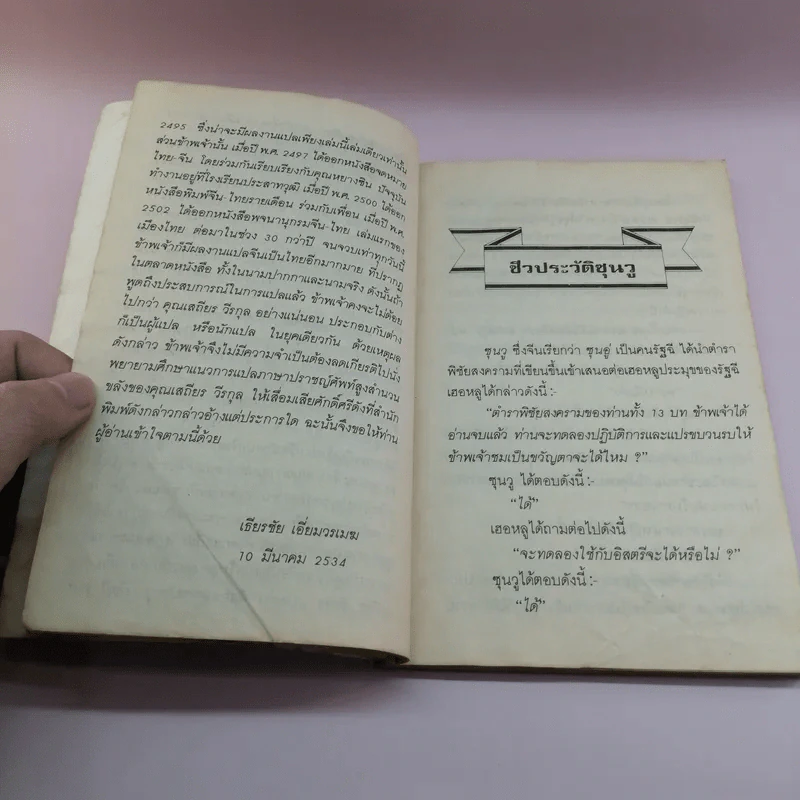 2495 ซึ่งน่าจะมีผลงานแปลเพียงเล่มนี้เล่มเดียวเท่านั้น
ส่วนข้าพเจ้านั้น เมื่อปี พ.ศ. 2497 ได้ออกหนังสือจดหมาย
ไทย-จีน โดยร่วมกันเรียบเรียงกับคุณหยางซิน ปัจจุบัน
ทำงานอยู่ที่โรงเรียนประสาทวุฒิ เมื่อปี พ.ศ. 2500 ได้ออก
หนังสือพิมพ์จีน-ไทยรายเดือน ร่วมกับเพื่อน เมื่อปี พ.ศ.
2502 ได้ออกหนังสือพจนานุกรมจีน-ไทย เล่มแรกของ
เมืองไทย ต่อมาในช่วง 30 กว่าปี จนจวบเท่าทุกวันนี้
ข้าพเจ้าก็มีผลงานแปลจีนเป็นไทยอีกมากมาย ที่ปรากฏ
ในตลาดหนังสือ ทั้งในนามปากกาและนามจริง ดังนั้นถ้า
พูดถึงประสบการณ์ในการแปลแล้ว ข้าพเจ้าคงจะไม่ด้อย
ไปกว่า คุณเสถียร วีรกุล อย่างแน่นอน ประกอบกับต่าง
ก็เป็นผู้แปล หรือนักแปล ในยุคเดียวกัน ด้วยเหตุผล
ดังกล่าว ข้าพเจ้าจึงไม่มีความจำเป็นต้องลดเกียรติไปนั่ง
พยายามศึกษาแนวการแปลภาษาปราชญ์ศัพท์สูงสำนวน
ขลังของคุณเสถียร วีรกุล ให้เสื่อมเสียศักดิ์ศรีดังที่สำนัก
พิมพ์ดังกล่าวกล่าวอ้างแต่ประการใด ฉะนั้นจึงขอให้ท่าน
ผู้อ่านเข้าใจตามนี้ด้วย
เธียรชัย เอี่ยมวรเมธ
10 มีนาคม 2534
ชีวประวัติซุนวู
ซุนวู ซึ่งจีนเรียกว่า ซุนอู่ เป็นคนรัฐฉี ได้นำตำรา
พิชัยสงครามที่เขียนขึ้นเข้าเสนอต่อเฮอหลูประมุขของรัฐฉี
เฮอหลูได้กล่าวดังนี้:-
“ตำราพิชัยสงครามของท่านทั้ง 13 บท ข้าพเจ้าได้
อ่านจบแล้ว ท่านจะทดลองปฏิบัติการและแปรขบวนรบให้
ข้าพเจ้าชมเป็นขวัญตาจะได้ไหม ?”
ซุนวู ได้ตอบดังนี้ :-
“ได้”
เฮอหลูได้ถามต่อไปดังนี้
“จะทดลองใช้กับอิสตรีจะได้หรือไม่ ?”
ซุนวูได้ตอบดังนี้ :-
“ได้”